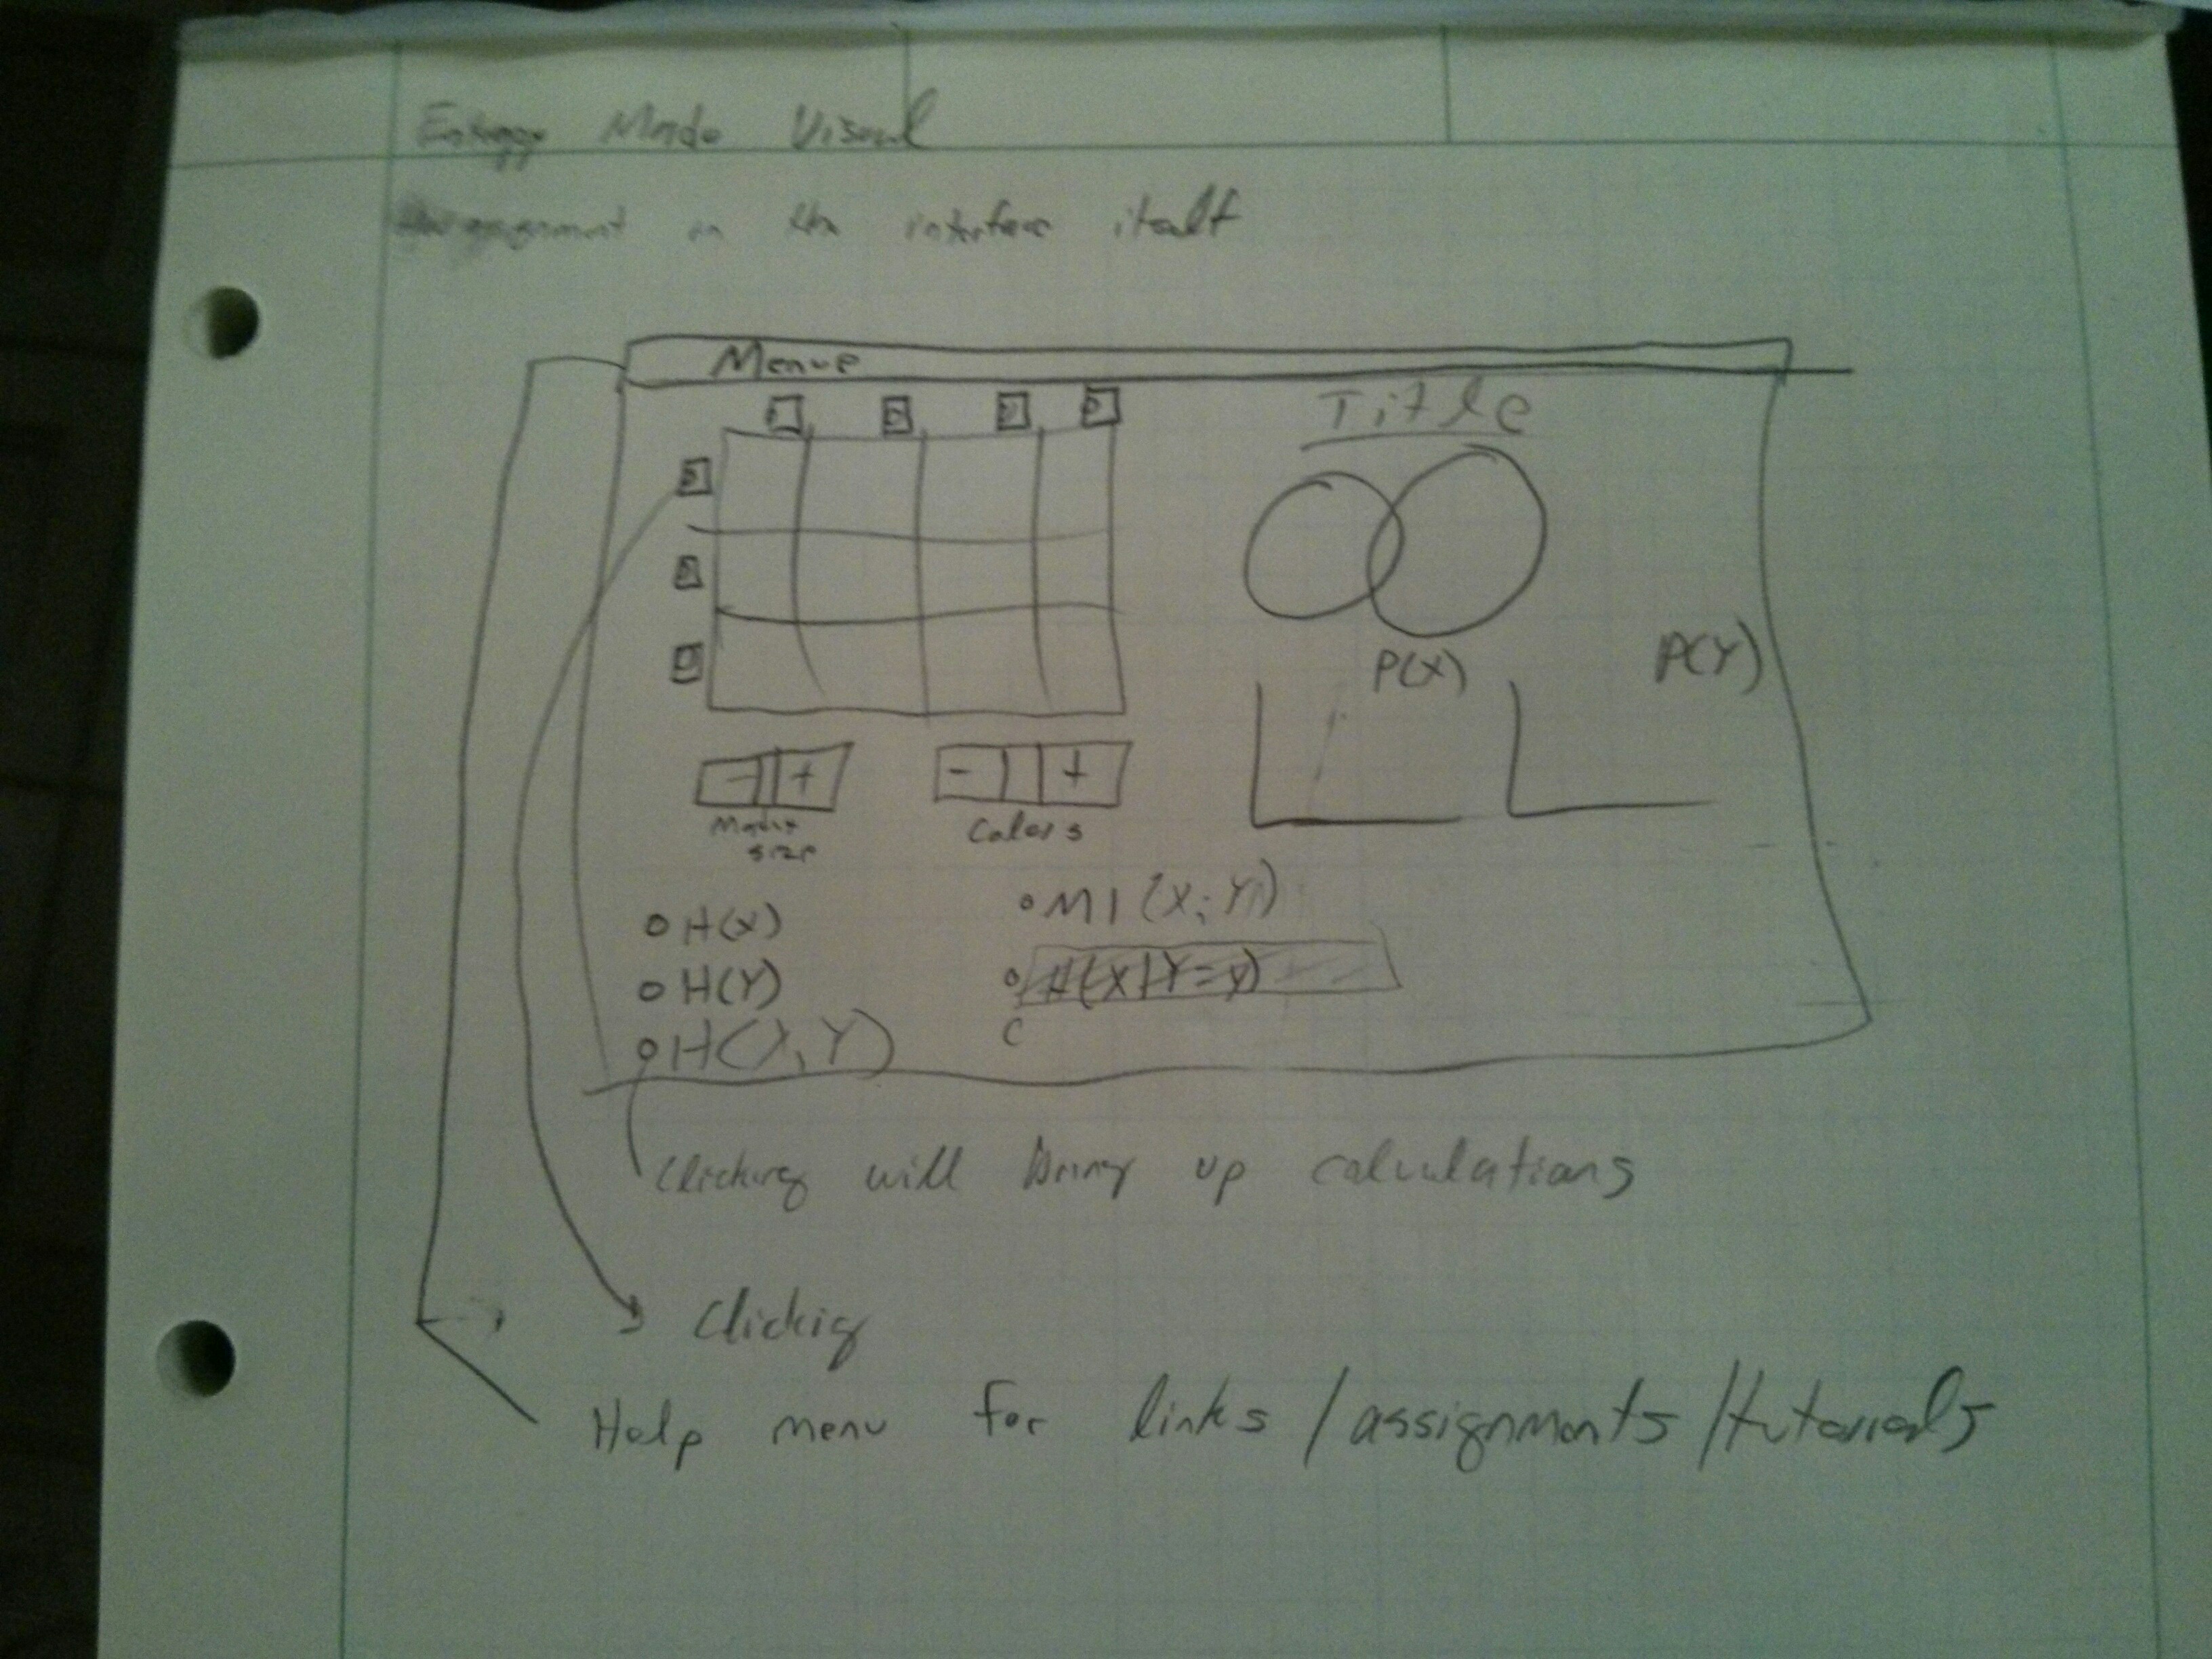 Entropy Made Visual
assignment in the interface itself
Menue
Title
P(X)
P(Y)
- +
- +
Matrix
size
Colors
H(X)
MI(X;Y)
H(Y)
H(X|Y=y)
H(X,Y)
C
Clicking will bring up calculations
Clickig
Help menu for links/assignments/tutorials